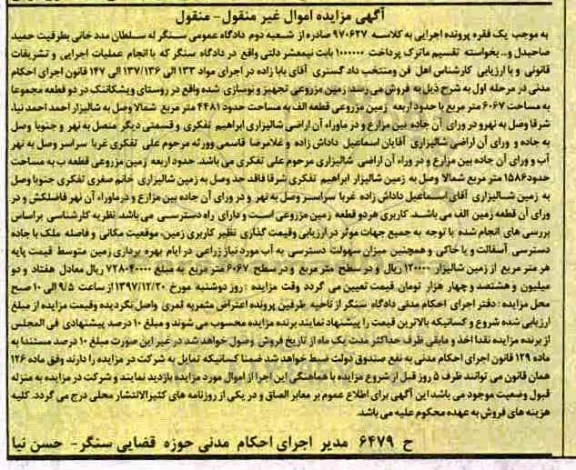 آگهی مزایده اموال غیر منقول- منقول
به موجب یک فقره پرونده اجرایی به کلاسه ۹۷۰۶۲۷ صادره از شعبه دوم دادگاه عمومی سنگر له سلطان مدد خانی بطرفیت حمید
صاحبدل و... بخواسته تقسیم ماترک پرداخت ۱۰۰۰۰۰۰ بابت نیمعشر دولتی واقع در دادگاه سنگر که با انجام عملیات اجرایی و تشریفات
قانونی و با ارزیابی کارشناس اهل فن ومنتخب داد گستری آقای بابا زاده در اجرای مواد ۱۳۳ الی ۱۳۷/۱۳۶ الی ۱۴۷ قانون اجرای احکام
مدنی در مرحله اول به شرح ذیل به فروش می رسد: زمین مزروعی تجهیز و نوسازی شده واقع در روستای ویشکاننک در دو قطعه مجموعا
به مساحت ۶۰۶۷ متر مربع با حدود اربعه زمین مزروعی قطعه الف به مساحت حدود ۴۴۸۱ متر مربع شمالا وصل به شالیزار احمد احمد نیا،
شرقا وصل به نهر و در ورای آن جاده بین مزارع و در ماوراء آن اراضی شالیزاری ابراهیم تفکری و قسمتی دیگر متصل به نهر و جنوبا وصل
به جاده و ورای آن اراضی شالیزاری آقایان اسماعیل داداش زاده و غلامرضا قاسمی وورثه مرحوم علی تفکری غربا سراسر وصل به نهر
آب و ورای آن جاده بین مزارع و در وراء آن اراضی شالیزاری مرحوم علی تفکری می باشد. حدود اربعه زمین مزروعی قطعه ب به مساحت
حدود ۱۵۸۶ متر مربع شمالا وصل به زمین شالیزار ابراهیم تفکری شرقا فاقد حد وصل به زمین شالیزاری خانم صغری تفکری جنوبا وصل
به زمین شالیزاری آقای اسماعیل داداش زاده غربا سراسر وصل به نهر و در ورای آن جاده بین مزارع و درماوراء آن نهر فاضلکش و در
ورای آن قطعه زمین الف می باشد. کاربری هر دو قطعه زمین مزروعی است و دارای راه دسترسی می باشد. نظریه کارشناسی براساس
بررسی های انجام شده با توجه به جمیع جهات موثر در ارزیابی وقیمت گذاری نظیر کاربری زمین، موقعیت مکانی و فاصله ملک با جاده
دسترسی آسفالت و یا خاکی و همچنین میزان سهولت دسترسی به آب مورد نیاز زراعی در ایام بهره برداری زمین متوسط قیمت پایه
هر متر مربع از زمین شالیزار ۱۲۰۰۰۰ ریال و در سطح متر مربع و در سطح ۶۰۶۷ متر مربع به مبلغ ۷۲۸۰۴۰۰۰۰ ریال معادل هفتاد و دو
میلیون و هشتصد و چهار هزار تومان قیمت تعیین می گردد وقت مزایده : روز دوشنبه مورخ ۱۳۹۷/۱۲/۲۰ از ساعت ۹/۵ الی ۱۰ صبح
محل مزایده : دفتر اجرای احکام مدنی دادگاه سنگر از ناحیه طرفین پرونده اعتراض مثمربه ثمری واصل نگردیده وقیمت مزایده از مبلغ
ارزیابی شده شروع و کسانیکه بالاترین قیمت را پیشنهاد نمایند برنده مزایده محسوب می شوند و مبلغ ۱۰ درصد پیشنهادی فی المجلس
از برنده مزایده نقدا اخذ و مابقی ظرف حداکثر مدت یک ماه از تاریخ فروش وصول خواهد شد در غیر این صورت مبلغ ۱۰ درصد مستندا به
ماده ۱۲۹ قانون اجرای احکام مدنی به نفع صندوق دولت ضبط خواهد شد ضمنا کسانیکه تمایل به شرکت در مزایده را دارند وفق ماده ۱۲۶
همان قانون می توانند ظرف ۵ روز قبل از شروع مزایده با هماهنگی این اجرا از اموال مورد مزایده بازدید نمایند و شرکت در مزایده به منزله
قبول وضعیت موجود می باشد این آگهی برای اطلاع عموم بر معابر الصاق و در یکی از روزنامه های کثیرالانتشار محلی درج می گردد. کلیه
هزینه های فروش به عهده محکوم علیه می باشد.
ح ۶۴۷۹ مدیر اجرای احکام مدنی حوزه قضایی سنگر- حسن نیا